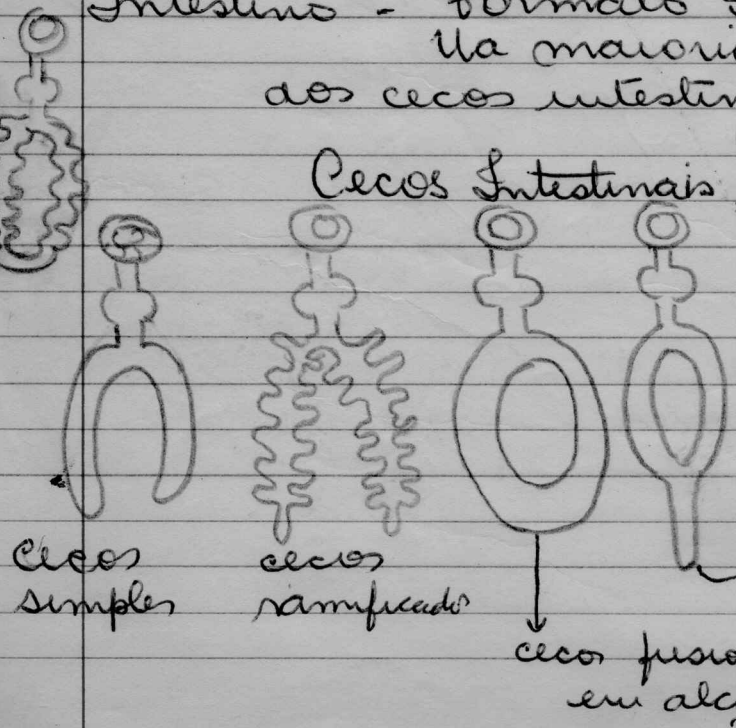 Intestino - formato
Na maioria
dos cecos intestin
Cecos Intestinais
Cecos
simples
cecos
ramificados
cecos fusio
em alç